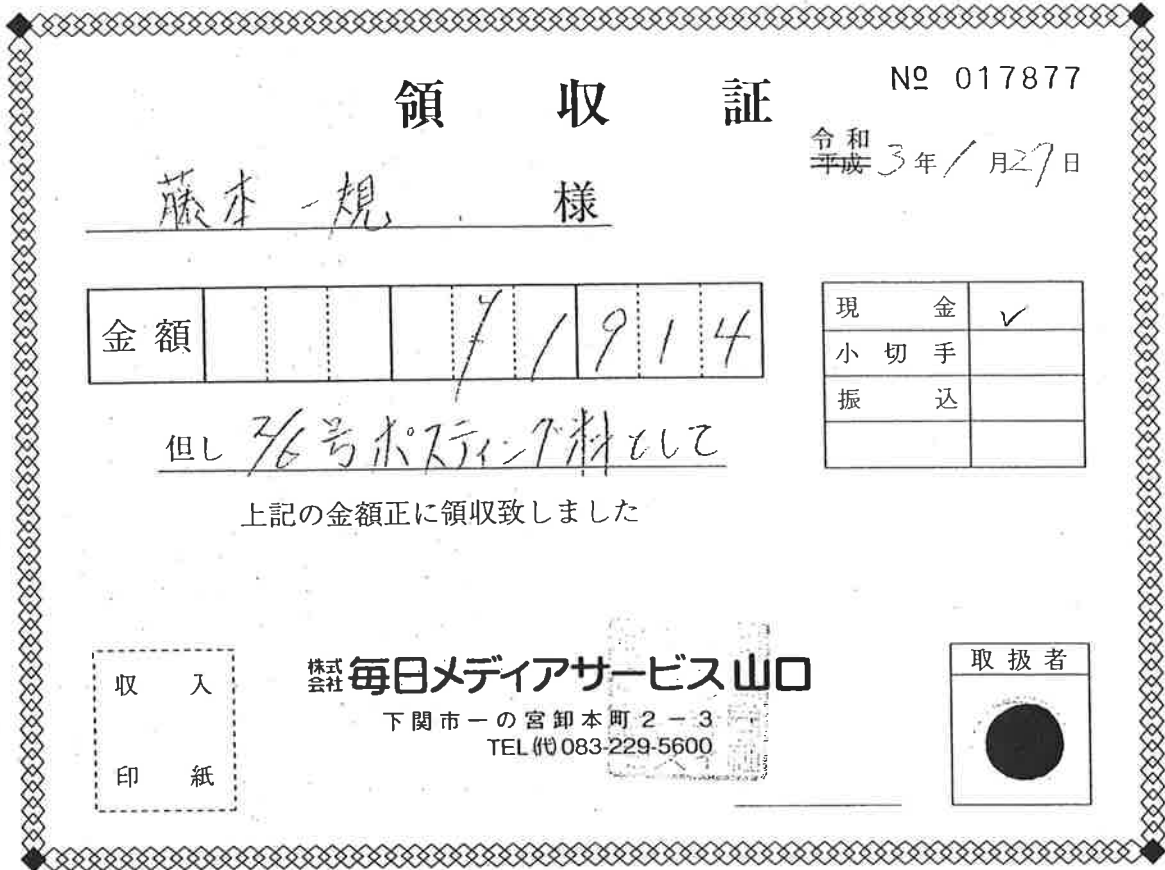 領収証
№ 017877
令和
平成 3年1月27日
藤本一規 様
金額 ¥1914
現金 ✓
小切手
振込
但し 2/6号ポスティング料として
上記の金額正に領収致しました
収入
印紙
株式会社 毎日メディアサービス山口
下関市一の宮卸本町2-3
TEL(代)083-229-5600
取扱者